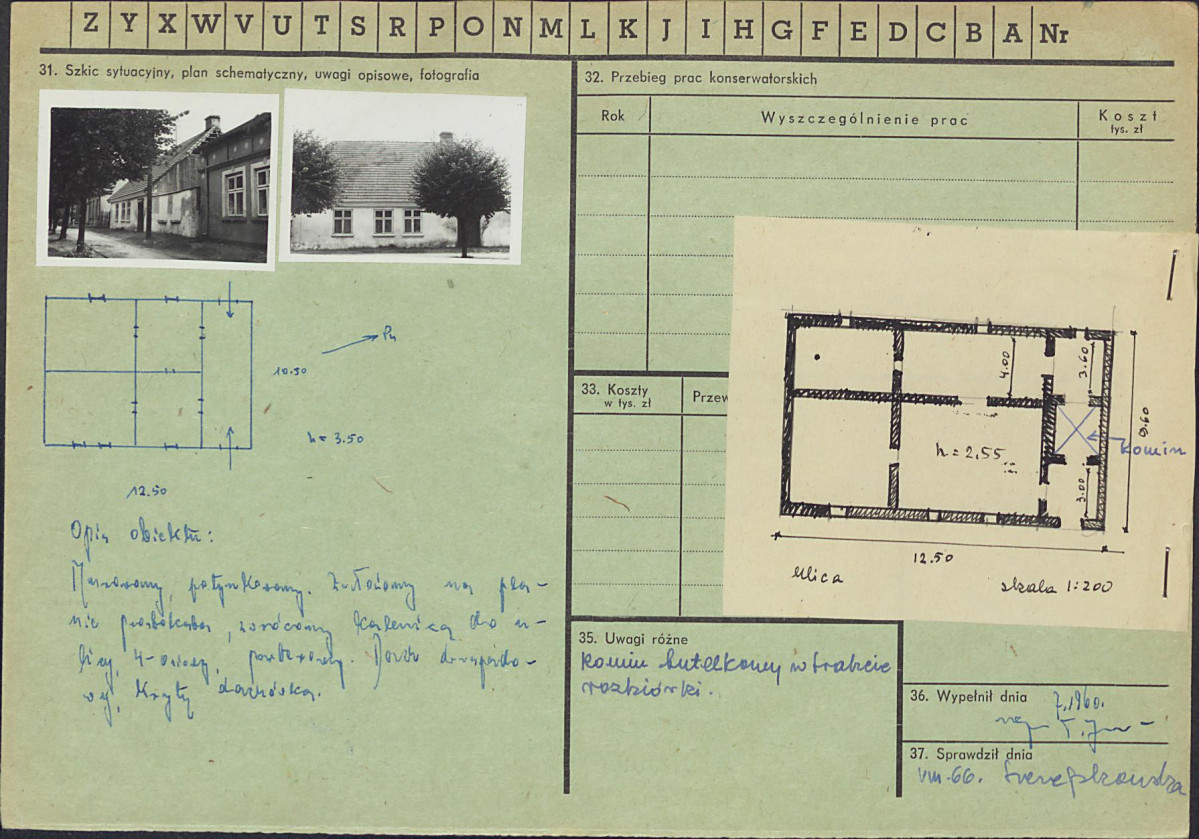 Z Y X W V U T S R P O N M L K J I H G F E D C B A Nr
31. Szkic sytuacyjny, plan schematyczny, uwagi opisowe, fotografia
Pn
10.50
h = 3.50
12.50
Opis obiektu:
Murowany, potynkowany. Założony na pla-
nie prostokąta, zwrócony kalenicą do u-
licy, 4-osiowy, parterowy. Dach dwuspado-
wy, kryty dachówką.
32. Przebieg prac konserwatorskich
Rok
Wyszczególnienie prac
Koszt
tys. zł
33. Koszty
w tys. zł
Przew
4.00
3.60
9.60
h = 2,55
komin
3.00
12.50
Ulica
skala 1:200
35. Uwagi różne
Komin butelkowy w trakcie
rozbiórki.
36. Wypełnił dnia
7.1960.
mgr
37. Sprawdził dnia
VIII-66.